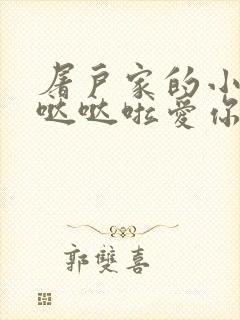 屠户家的小
哒哒啦爱你
郭雙喜